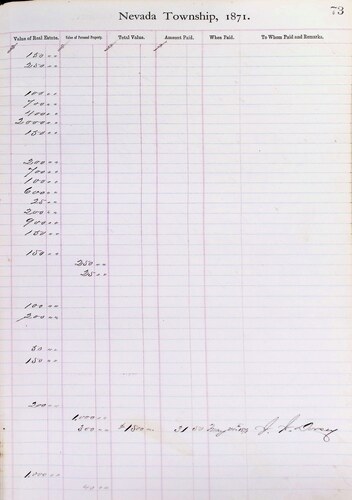 73
Nevada Township, 1871.
Value of Real Estate. Value of Personal Property. Total Value. Amount Paid. When Paid. To Whom Paid and Remarks.
150 00
250 00
100 00
700 00
400 00
2000 00
150 00
200 00
700 00
100 00
600 00
25 00
200 00
900 00
150 00
150 00
250 00
25 00
100 00
200 00
50 00
150 00
200 00
1,000 00
300 00 1800 00 31 00 May
1,000 00
40 00